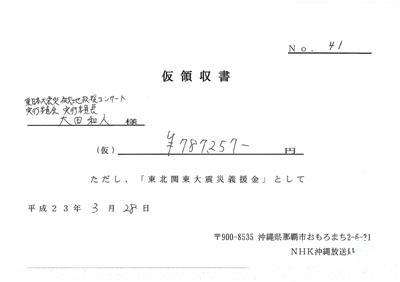 No. 41
仮領収書
東日本大震災被災地救援コンサート
実行委員会 実行委員長
太田和人 様
(仮) ¥787,257- 円
ただし、「東北関東大震災義援金」として
平成23年 3月 28日
〒900-8535 沖縄県那覇市おもろまち2-6-21
NHK沖縄放送局